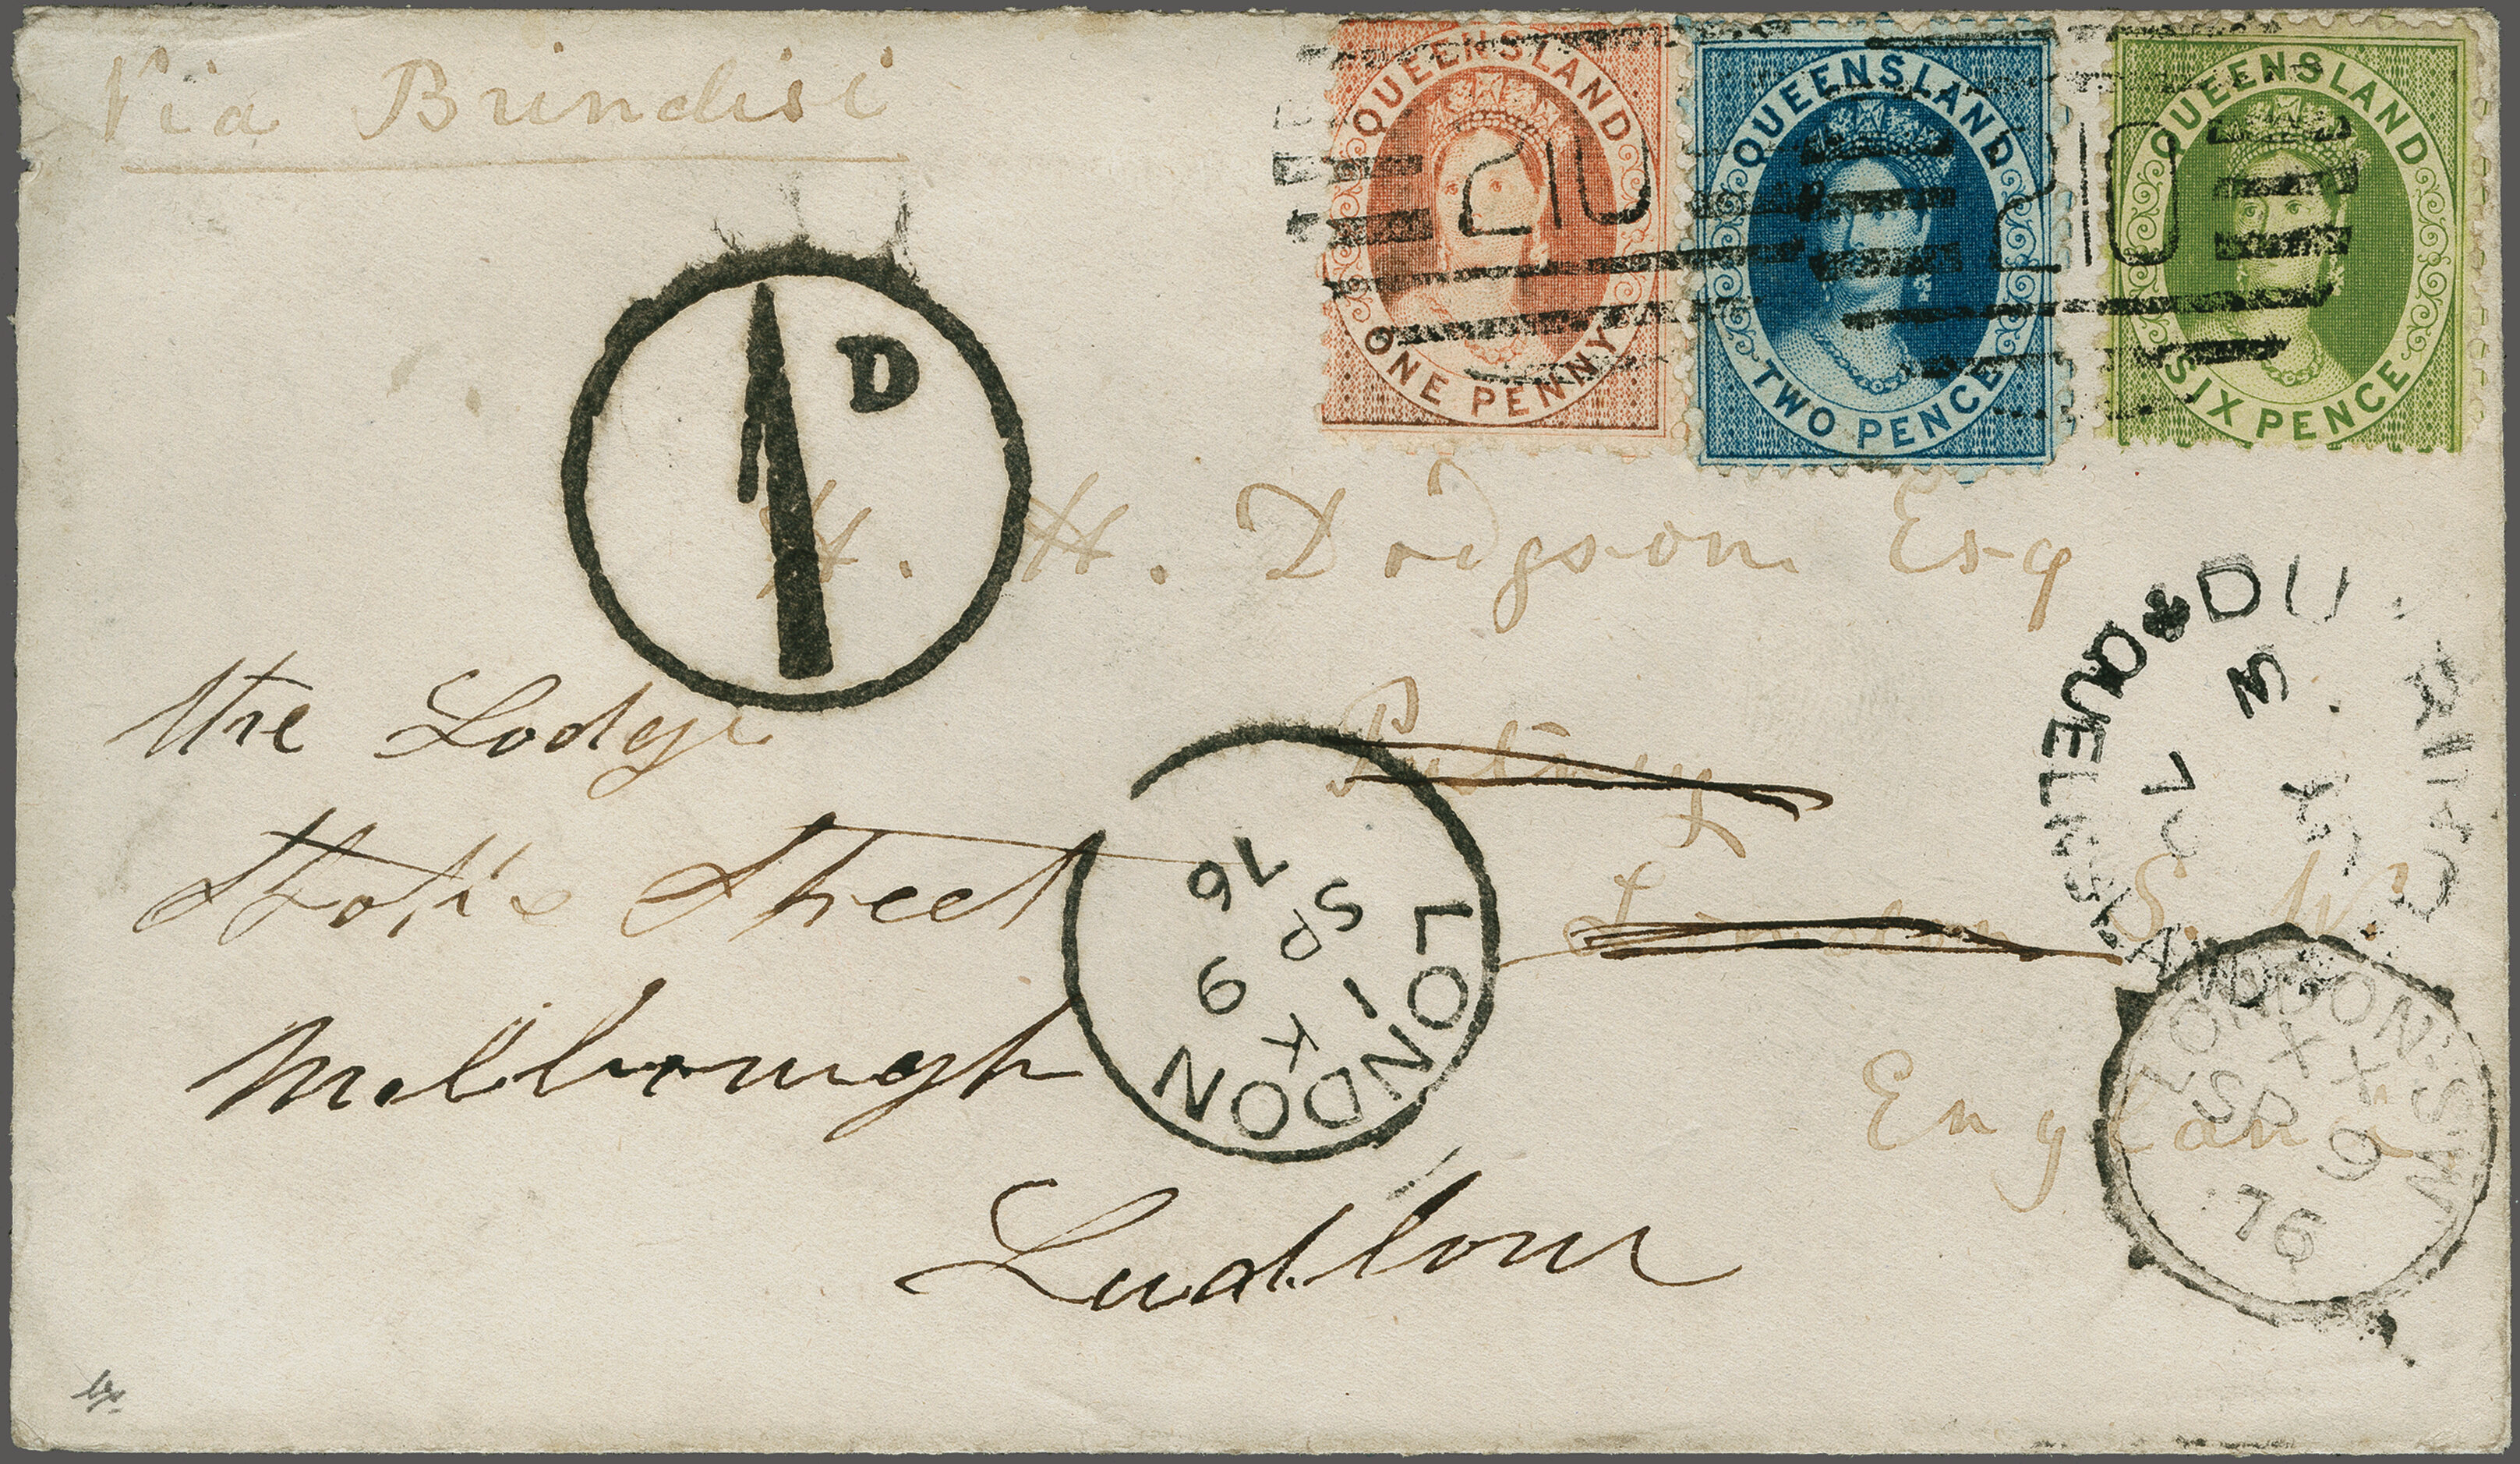 Via Brindisi
QUEENSLAND
ONE PENNY
QUEENSLAND
TWO PENCE
QUEENSLAND
SIX PENCE
210
210
1 D
H. H. Dodgson Esq
Putney
London S. W.
England
the Lodge
Street
Ludlow
LONDON
1 K
9
SP
76
QUEENSLAND
LONDON. S.W
X X
SP 9
76